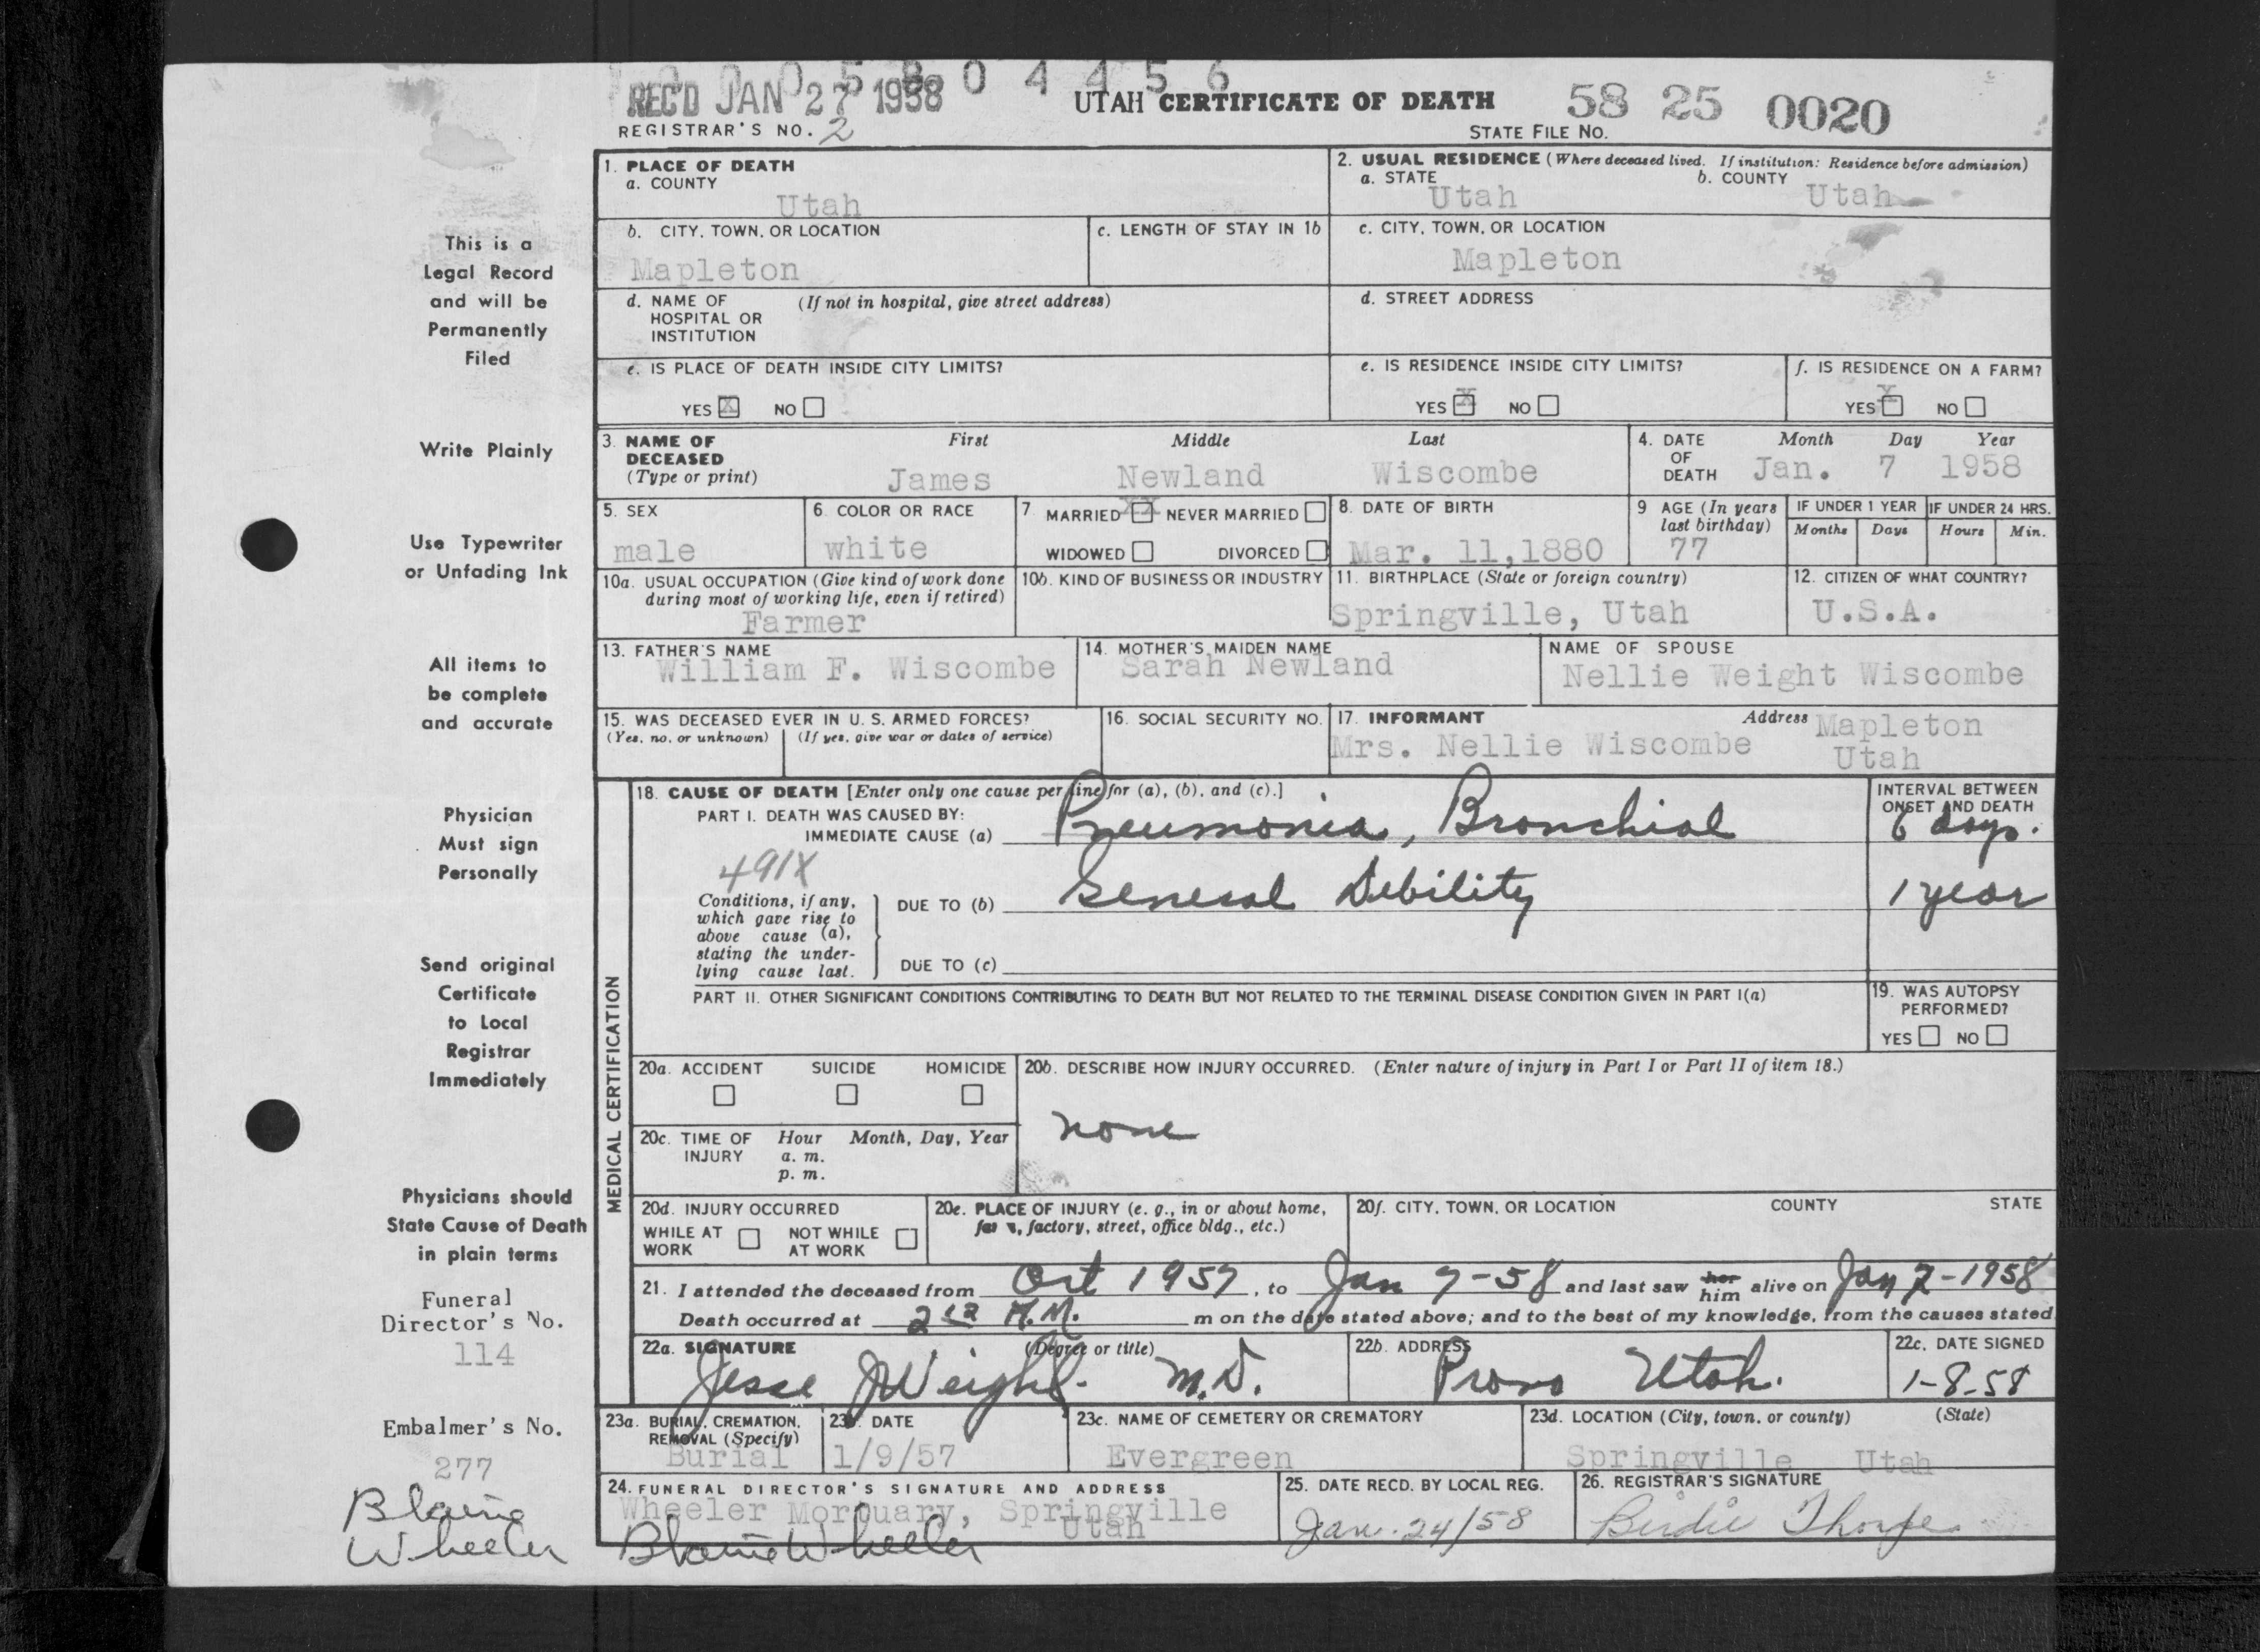 0 0 0 5 8 0 4 4 5 6
REC'D JAN 27 1958
UTAH CERTIFICATE OF DEATH
58 25 0020
REGISTRAR'S NO. 2
STATE FILE NO.
This is a
Legal Record
and will be
Permanently
Filed
Write Plainly
Use Typewriter
or Unfading Ink
All items to
be complete
and accurate
Physician
Must sign
Personally
Send original
Certificate
to Local
Registrar
Immediately
Physicians should
State Cause of Death
in plain terms
Funeral
Director's No.
114
Embalmer's No.
277
Blaine
Wheeler
1. PLACE OF DEATH
a. COUNTY
Utah
2. USUAL RESIDENCE (Where deceased lived. If institution: Residence before admission)
a. STATE b. COUNTY
Utah Utah
b. CITY, TOWN, OR LOCATION
Mapleton
c. LENGTH OF STAY IN 1b
c. CITY, TOWN, OR LOCATION
Mapleton
d. NAME OF (If not in hospital, give street address)
HOSPITAL OR
INSTITUTION
d. STREET ADDRESS
e. IS PLACE OF DEATH INSIDE CITY LIMITS?
YES X NO
e. IS RESIDENCE INSIDE CITY LIMITS?
YES X NO
f. IS RESIDENCE ON A FARM?
YES X NO
3. NAME OF DECEASED (Type or print)
First Middle Last
James Newland Wiscombe
4. DATE OF DEATH
Month Day Year
Jan. 7 1958
5. SEX
male
6. COLOR OR RACE
white
7. MARRIED XX NEVER MARRIED
WIDOWED DIVORCED
8. DATE OF BIRTH
Mar. 11,1880
9 AGE (In years
last birthday)
77
IF UNDER 1 YEAR IF UNDER 24 HRS.
Months Days Hours Min.
10a. USUAL OCCUPATION (Give kind of work done
during most of working life, even if retired)
Farmer
10b. KIND OF BUSINESS OR INDUSTRY
11. BIRTHPLACE (State or foreign country)
Springville, Utah
12. CITIZEN OF WHAT COUNTRY?
U.S.A.
13. FATHER'S NAME
William F. Wiscombe
14. MOTHER'S MAIDEN NAME
Sarah Newland
NAME OF SPOUSE
Nellie Weight Wiscombe
15. WAS DECEASED EVER IN U. S. ARMED FORCES?
(Yes, no, or unknown) (If yes, give war or dates of service)
16. SOCIAL SECURITY NO.
17. INFORMANT Address
Mrs. Nellie Wiscombe Mapleton
Utah
MEDICAL CERTIFICATION
18. CAUSE OF DEATH [Enter only one cause per line for (a), (b), and (c).]
PART I. DEATH WAS CAUSED BY:
IMMEDIATE CAUSE (a) Pneumonia, Bronchial
INTERVAL BETWEEN
ONSET AND DEATH
6 days.
491X
Conditions, if any,
which gave rise to
above cause (a),
stating the under-
lying cause last.
DUE TO (b) General Debility
1 year
DUE TO (c)
PART II. OTHER SIGNIFICANT CONDITIONS CONTRIBUTING TO DEATH BUT NOT RELATED TO THE TERMINAL DISEASE CONDITION GIVEN IN PART I(a)
19. WAS AUTOPSY
PERFORMED?
YES NO
20a. ACCIDENT SUICIDE HOMICIDE
20b. DESCRIBE HOW INJURY OCCURRED. (Enter nature of injury in Part I or Part II of item 18.)
none
20c. TIME OF Hour Month, Day, Year
INJURY a. m.
p. m.
20d. INJURY OCCURRED
WHILE AT NOT WHILE
WORK AT WORK
20e. PLACE OF INJURY (e. g., in or about home,
farm, factory, street, office bldg., etc.)
20f. CITY, TOWN, OR LOCATION COUNTY STATE
21. I attended the deceased from Oct 1957, to Jan 7-58 and last saw her him alive on Jan 7-1958
Death occurred at A.M. m on the date stated above; and to the best of my knowledge, from the causes stated
22a. SIGNATURE (Degree or title)
Jesse J Weight. M.D.
22b. ADDRESS
Provo Utah.
22c. DATE SIGNED
1-8-58
23a. BURIAL, CREMATION,
REMOVAL (Specify)
Burial
23b. DATE
1/9/57
23c. NAME OF CEMETERY OR CREMATORY
Evergreen
23d. LOCATION (City, town, or county) (State)
Springville Utah
24. FUNERAL DIRECTOR'S SIGNATURE AND ADDRESS
Wheeler Mortuary, Springville
Utah
Blaine Wheeler
25. DATE RECD. BY LOCAL REG.
Jan. 24/58
26. REGISTRAR'S SIGNATURE
Birdie Thorpe